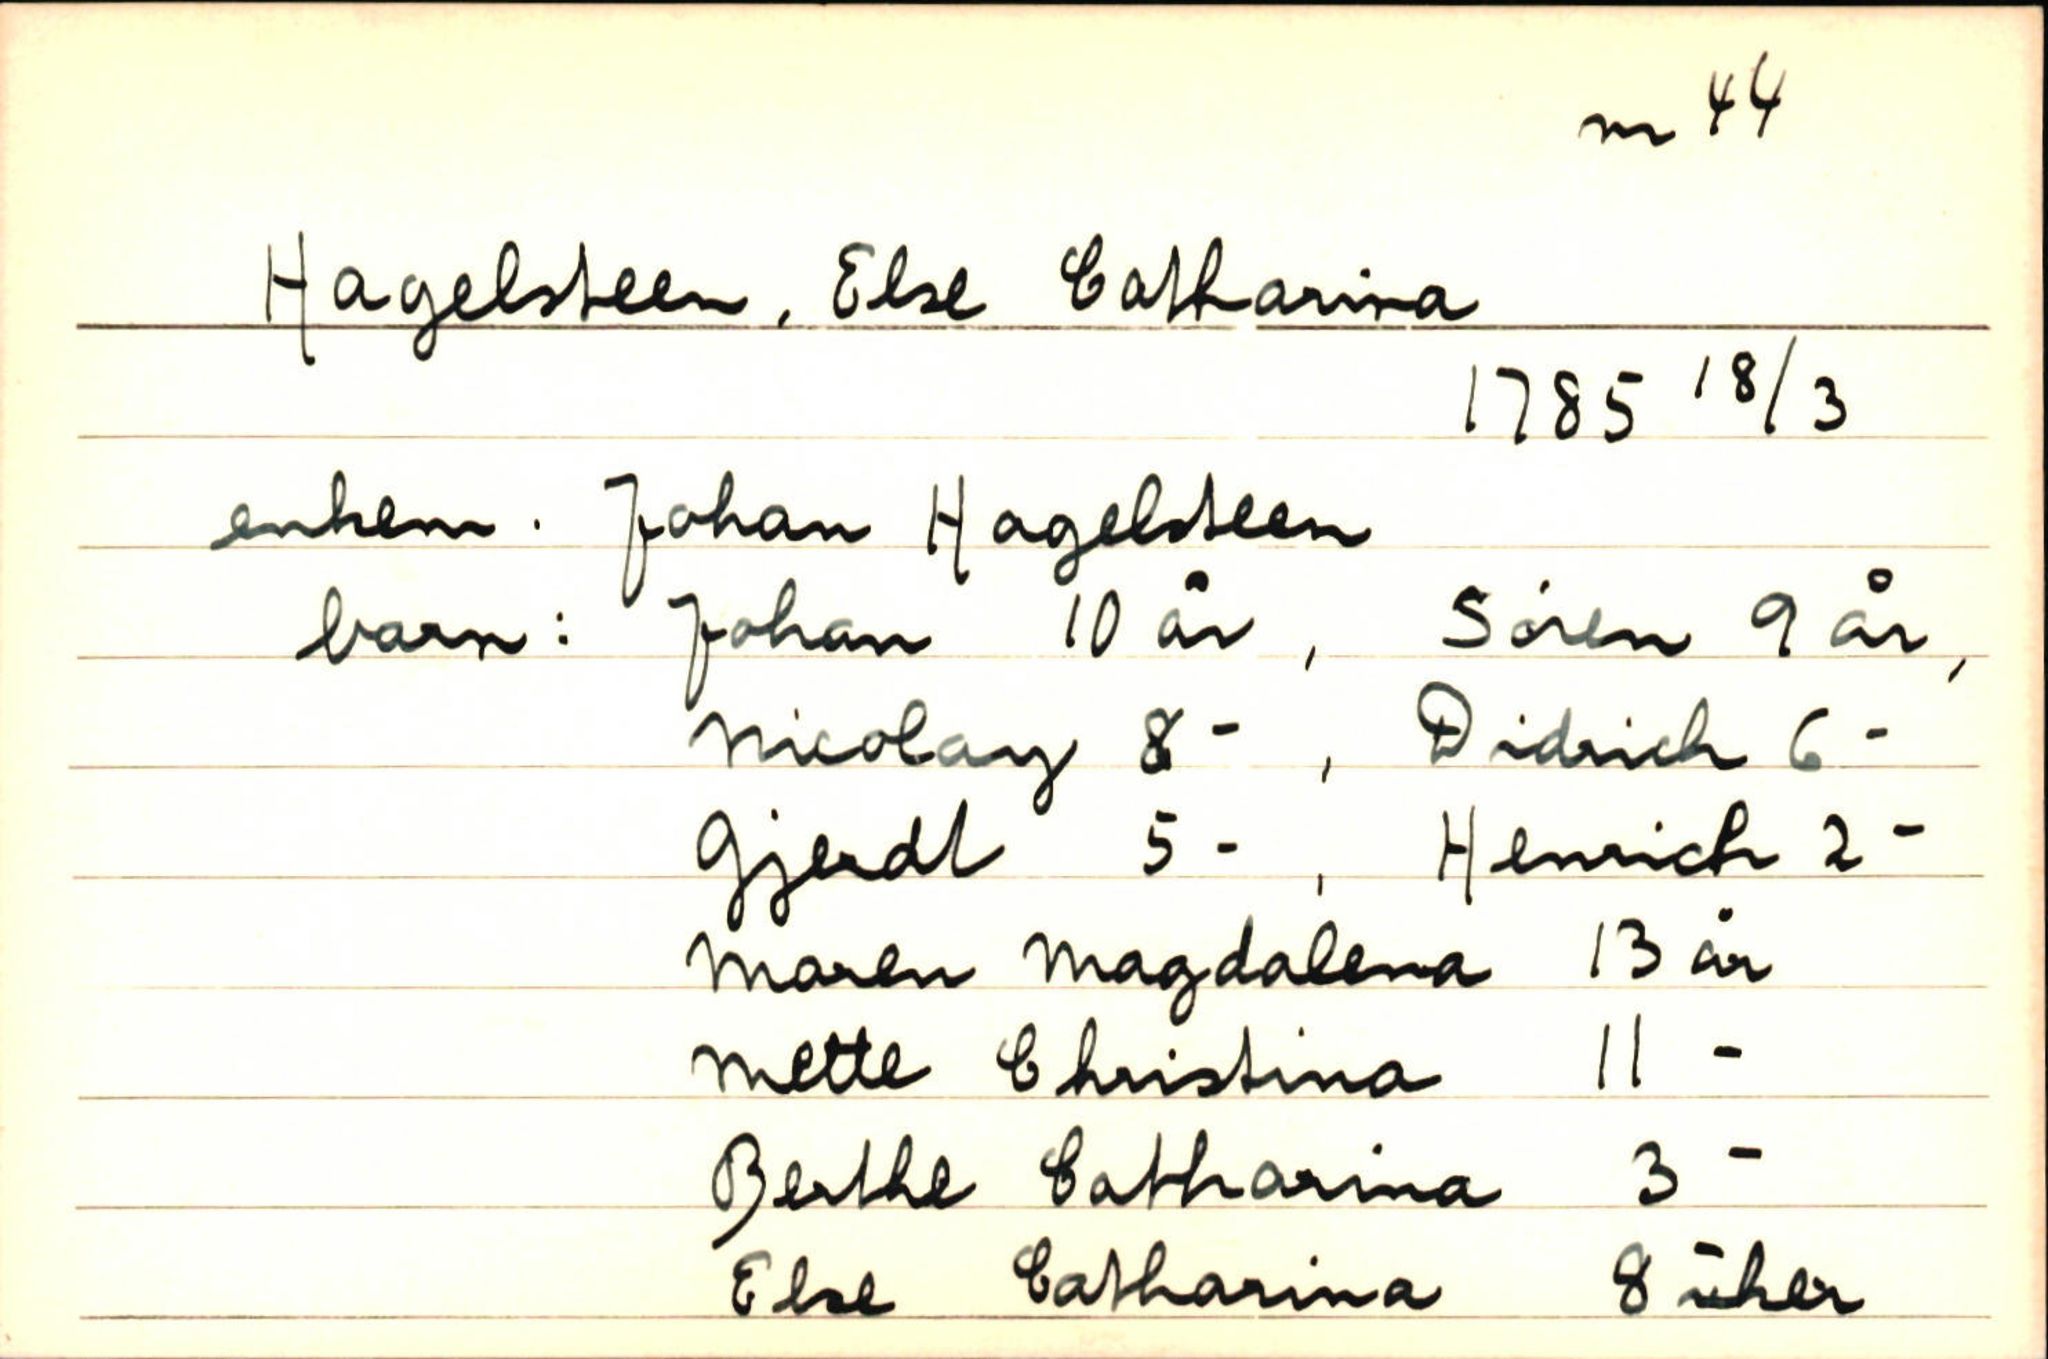 nr 44
Hagelsteen, Else Catharina
1785 18/3
enkem. Johan Hagelsteen
barn: Johan 10 år, Søren 9 år,
Nicolay 8 -, Didrich 6 -
Gjerdt 5 -, Henrich 2 -
Maren Magdalena 13 år
Mette Christina 11 -
Berthe Catharina 3 -
Else Catharina 8 uker